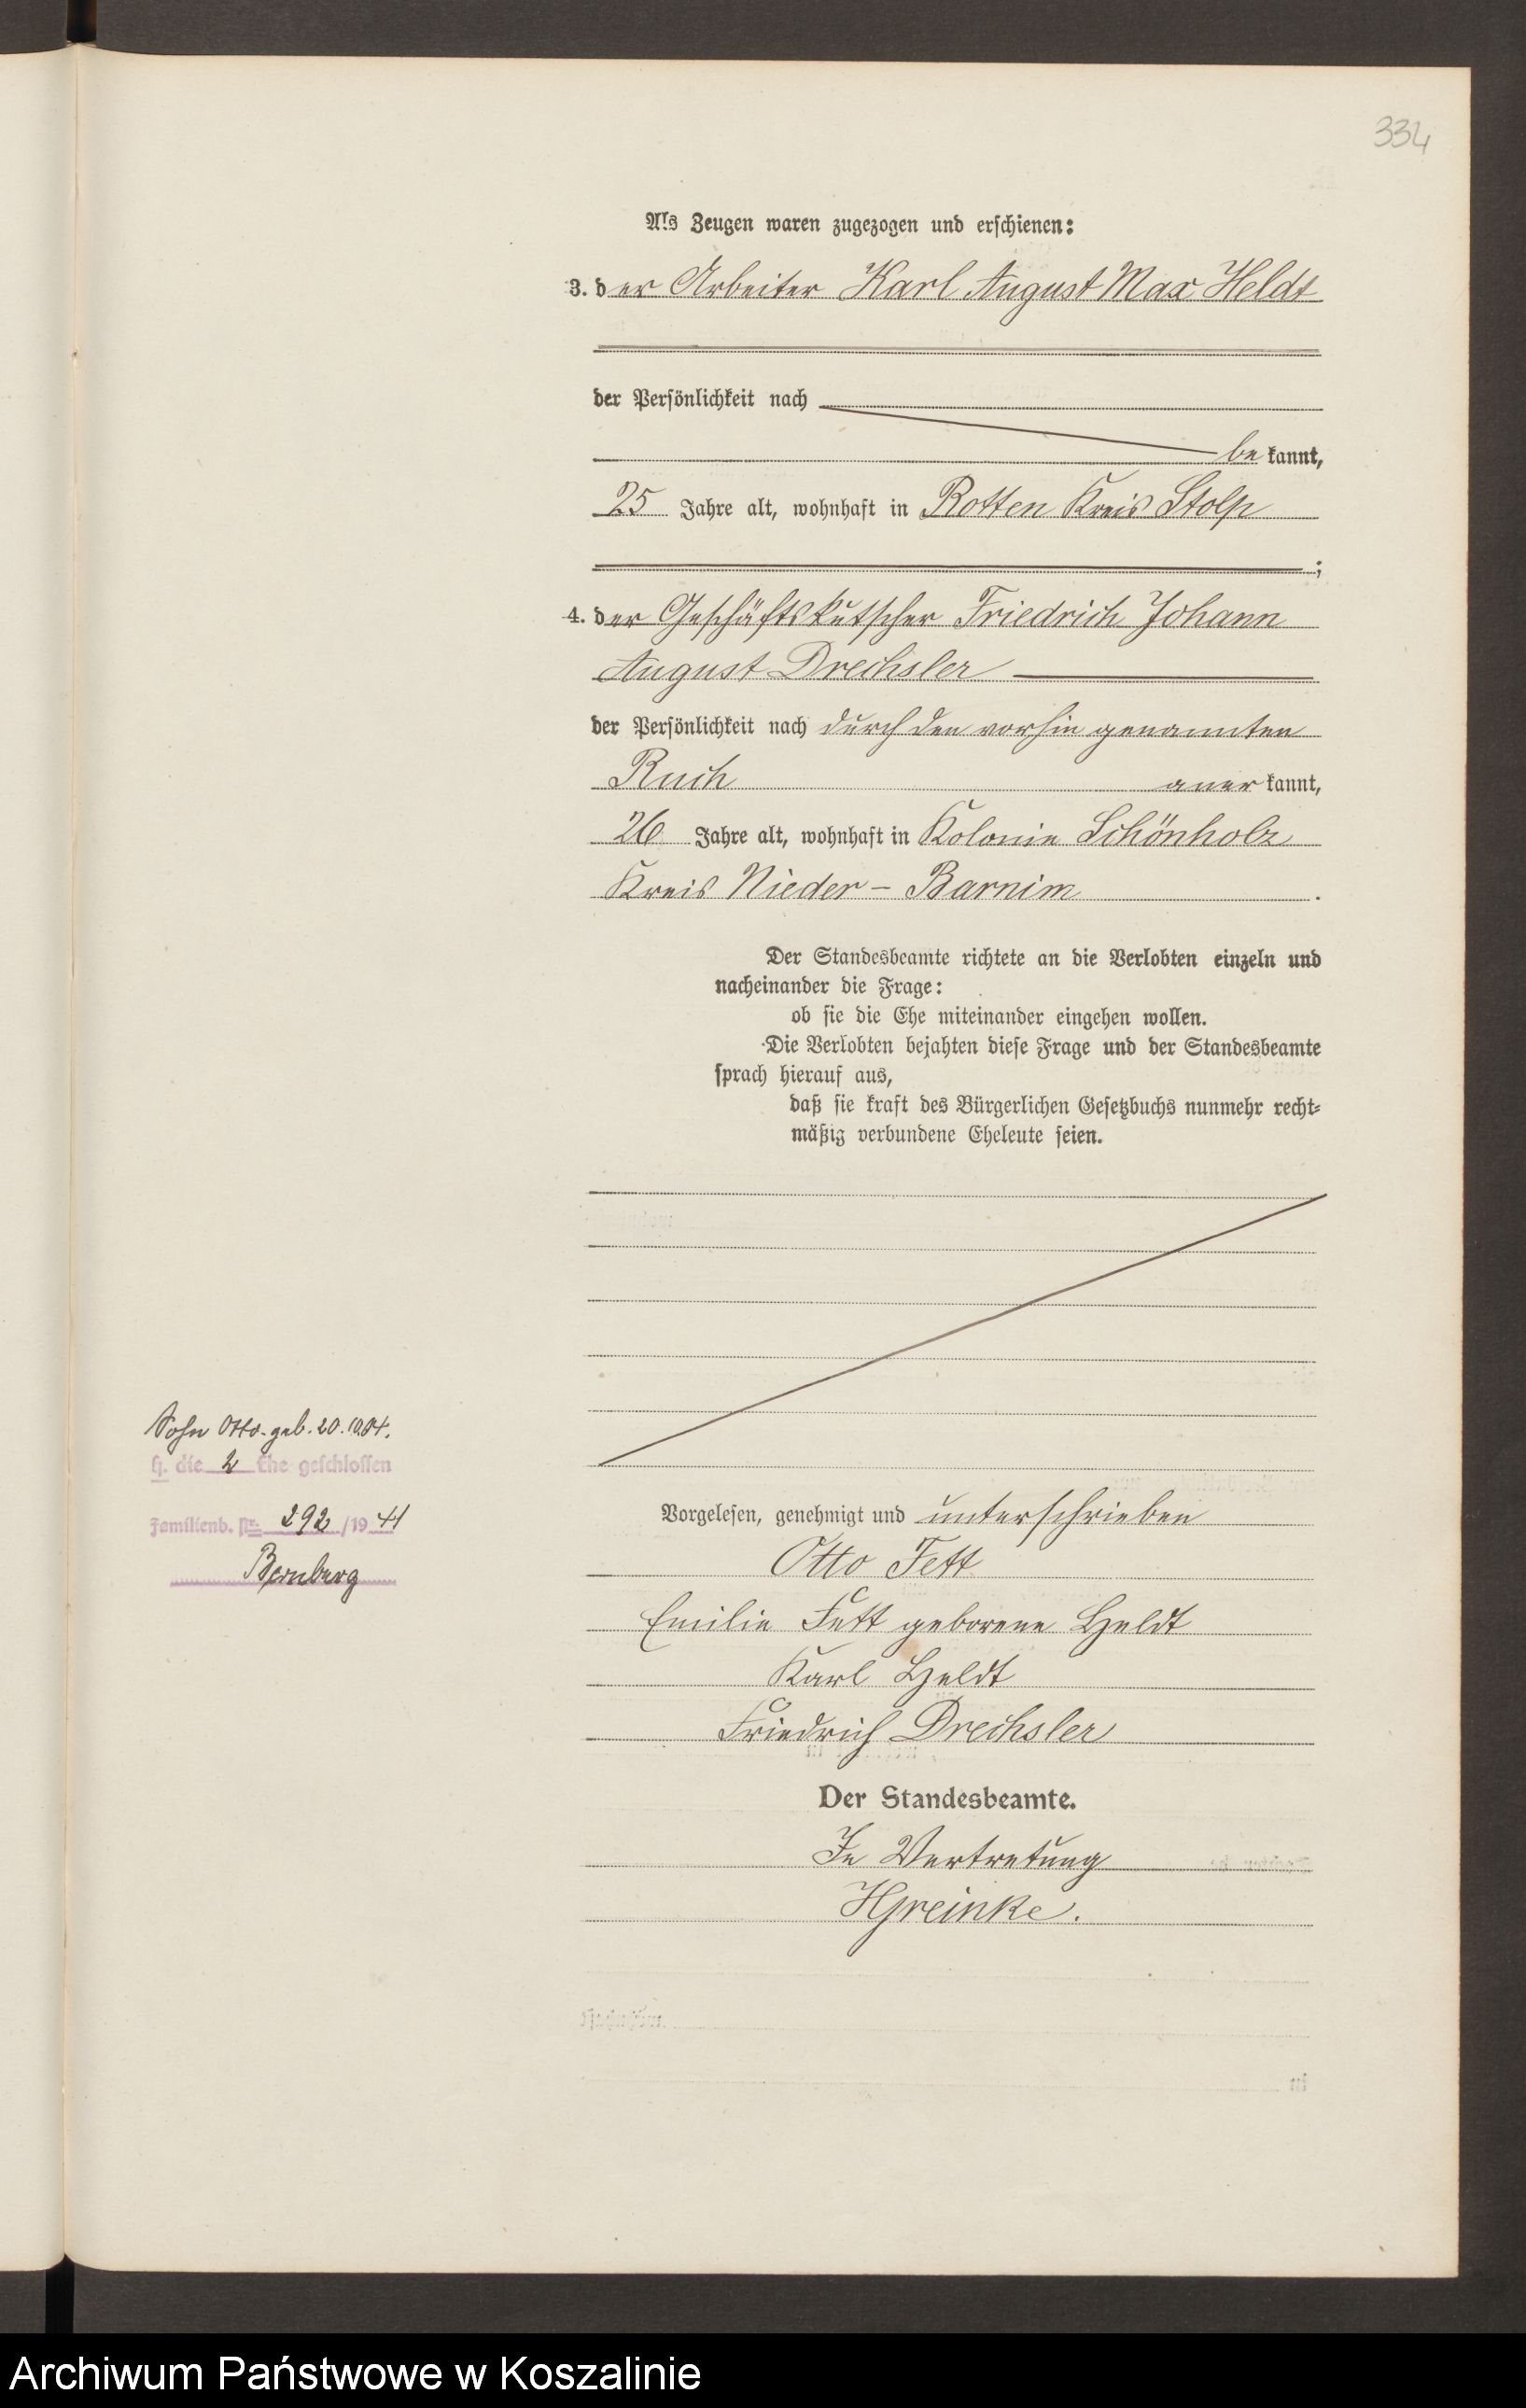 334
Als Zeugen waren zugezogen und erschienen:
3. der Arbeiter Karl August Max Heldt
der Persönlichkeit nach
bekannt,
25 Jahre alt, wohnhaft in Rotten Kreis Stolp
;
4. der Geschäftskutscher Friedrich Johann
August Drechsler
der Persönlichkeit nach durch den vorhin genannten
Ruch anerkannt,
26 Jahre alt, wohnhaft in Kolonie Schönholz
Kreis Nieder-Barnim.
Der Standesbeamte richtete an die Verlobten einzeln und
nacheinander die Frage:
ob sie die Ehe miteinander eingehen wollen.
Die Verlobten bejahten diese Frage und der Standesbeamte
sprach hierauf aus,
daß sie kraft des Bürgerlichen Gesetzbuchs nunmehr recht-
mäßig verbundene Eheleute seien.
Sohn Otto geb. 20.10.04.
H. die 2 Ehe geschlossen
Familienb. Nr. 292/1941
Bernburg
Vorgelesen, genehmigt und unterschrieben
Otto Fett
Emilie Fett geborene Heldt
Karl Heldt
Friedrich Drechsler
Der Standesbeamte.
In Vertretung
Archiwum Państwowe w Koszalinie